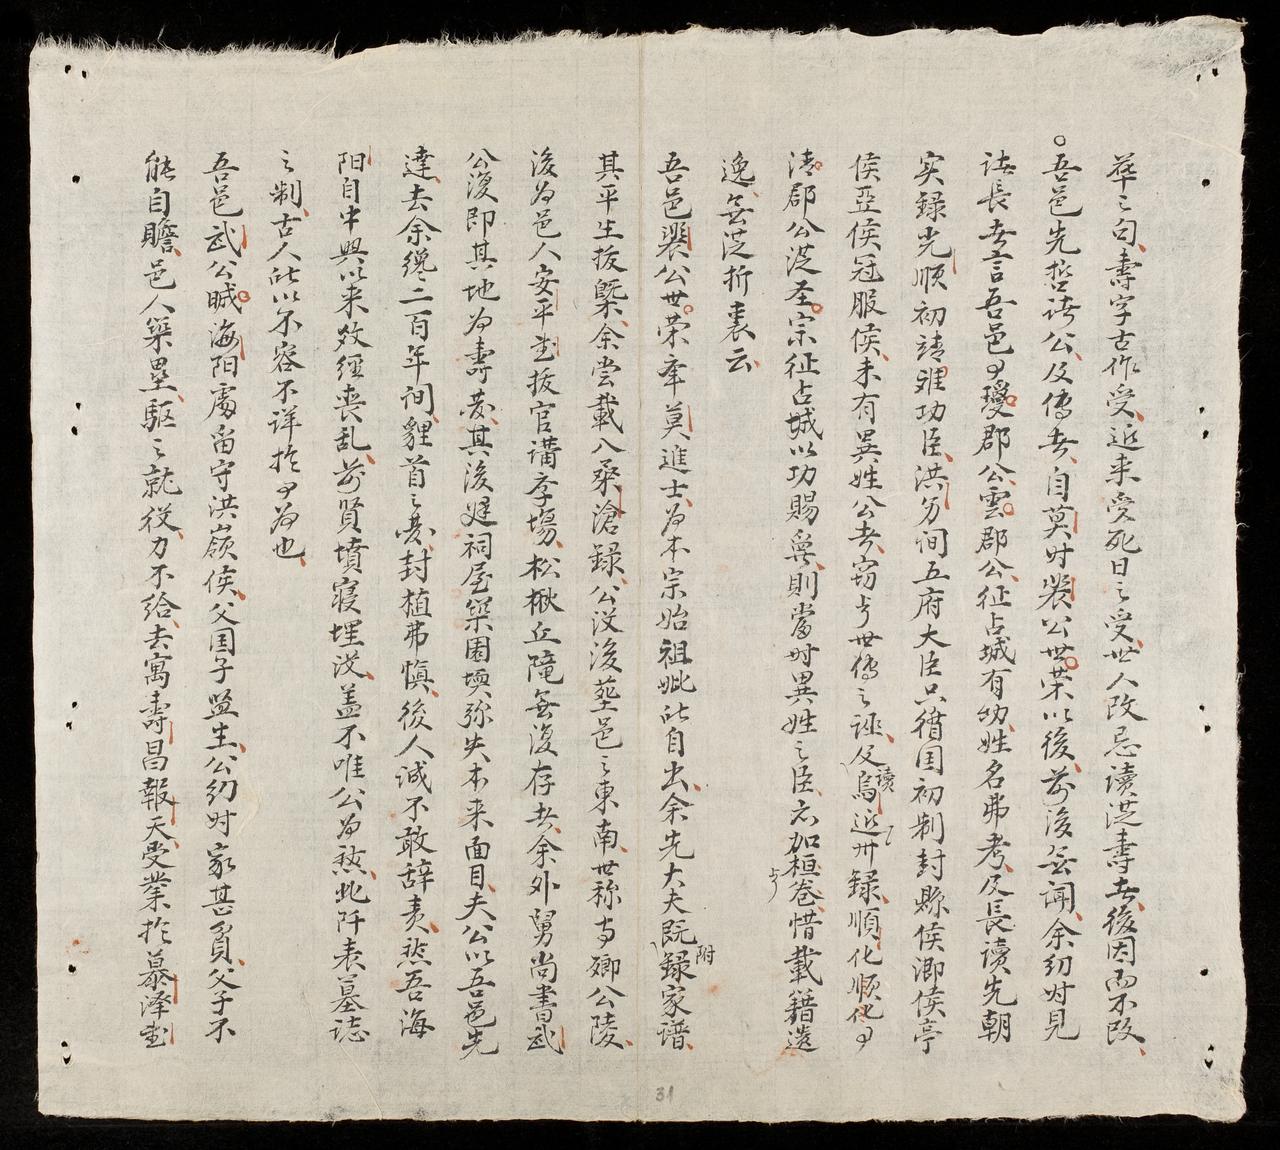 華之句壽字古作受近来受死日之受世人改忌讀諟壽者後因而不改
○吾邑先哲諸公及傳者自莫时裴公世荣以後前後無闻余幼时見
諸長者言吾邑有瓊郡公雲郡公征占城有功姓名弗考及長讀先朝
实録光順初靖雅功臣洪分间五府大臣只循国初制封縣侯鄉侯亭
侯亞侯冠服侯未有異姓公者窃与世傳之誣及讀烏近州録順化順化有
清郡公從圣宗征占城以功賜爵則當时異姓之臣亦加桓卷惜載籍遗
逸無從折衷云
吾邑裴公世荣奉莫進士为本宗始祖妣所自出余先大夫既附録家谱
其平生扳槩余尝載入桑滄録公没後葬邑之東南世称寺卿公陵
後为邑人安平堂扳官講李塲松楸丘隴無復存者余外舅尚書武
公復即其地为壽茔其後建祠屋築園堧弥失本来面目夫公以吾邑先
達去余纔二百年间貍首之茔封植弗慎後人诚不敢辞责然吾海
阳自中興以来效經喪乱前賢墳寝埋没盖不唯公为然此阡表墓誌
之制古人所以不容不详於有为也
吾邑武公晠海阳處留守洪嶺侯父国子监生公幼时家甚貧父子不
能自贍邑人築壘駆之就役力不給去寓壽昌報天受業於慕泽堂
31